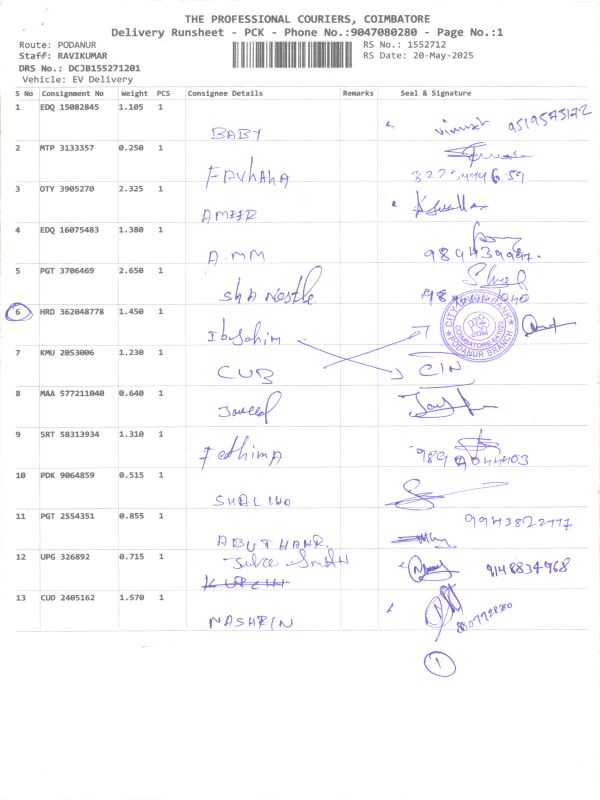 THE PROFESSIONAL COURIERS, COIMBATORE
Delivery Runsheet - PCK - Phone No.:9047080280 - Page No.:1
Route: PODANUR
RS No.: 1552712
Staff: RAVIKUMAR
RS Date: 20-May-2025
DRS No.: DCJB155271201
Vehicle: EV Delivery
S No Consignment No Weight PCS Consignee Details Remarks Seal & Signature
1 EDQ 15082845 1.105 1
BABY 9519575172
2 MTP 3133357 0.250 1
3 OTY 3905270 2.325 1
AMEER
4 EDQ 16075483 1.380 1
A.MM
5 PGT 3706469 2.650 1
6 HRD 362048778 1.450 1
Ibrahim
CITY UNION BANK
COIMBATORE-641023
PODANUR BRANCH
7 KMU 2053006 1.230 1
CUB
8 MAA 577211040 0.640 1
9 SRT 58313934 1.310 1
Fathima
10 PDK 9064859 0.515 1
11 PGT 2554351 0.855 1
9943822777
12 UPG 326892 0.715 1
9148834968
13 CUD 2405162 1.570 1
NASHRIN
1